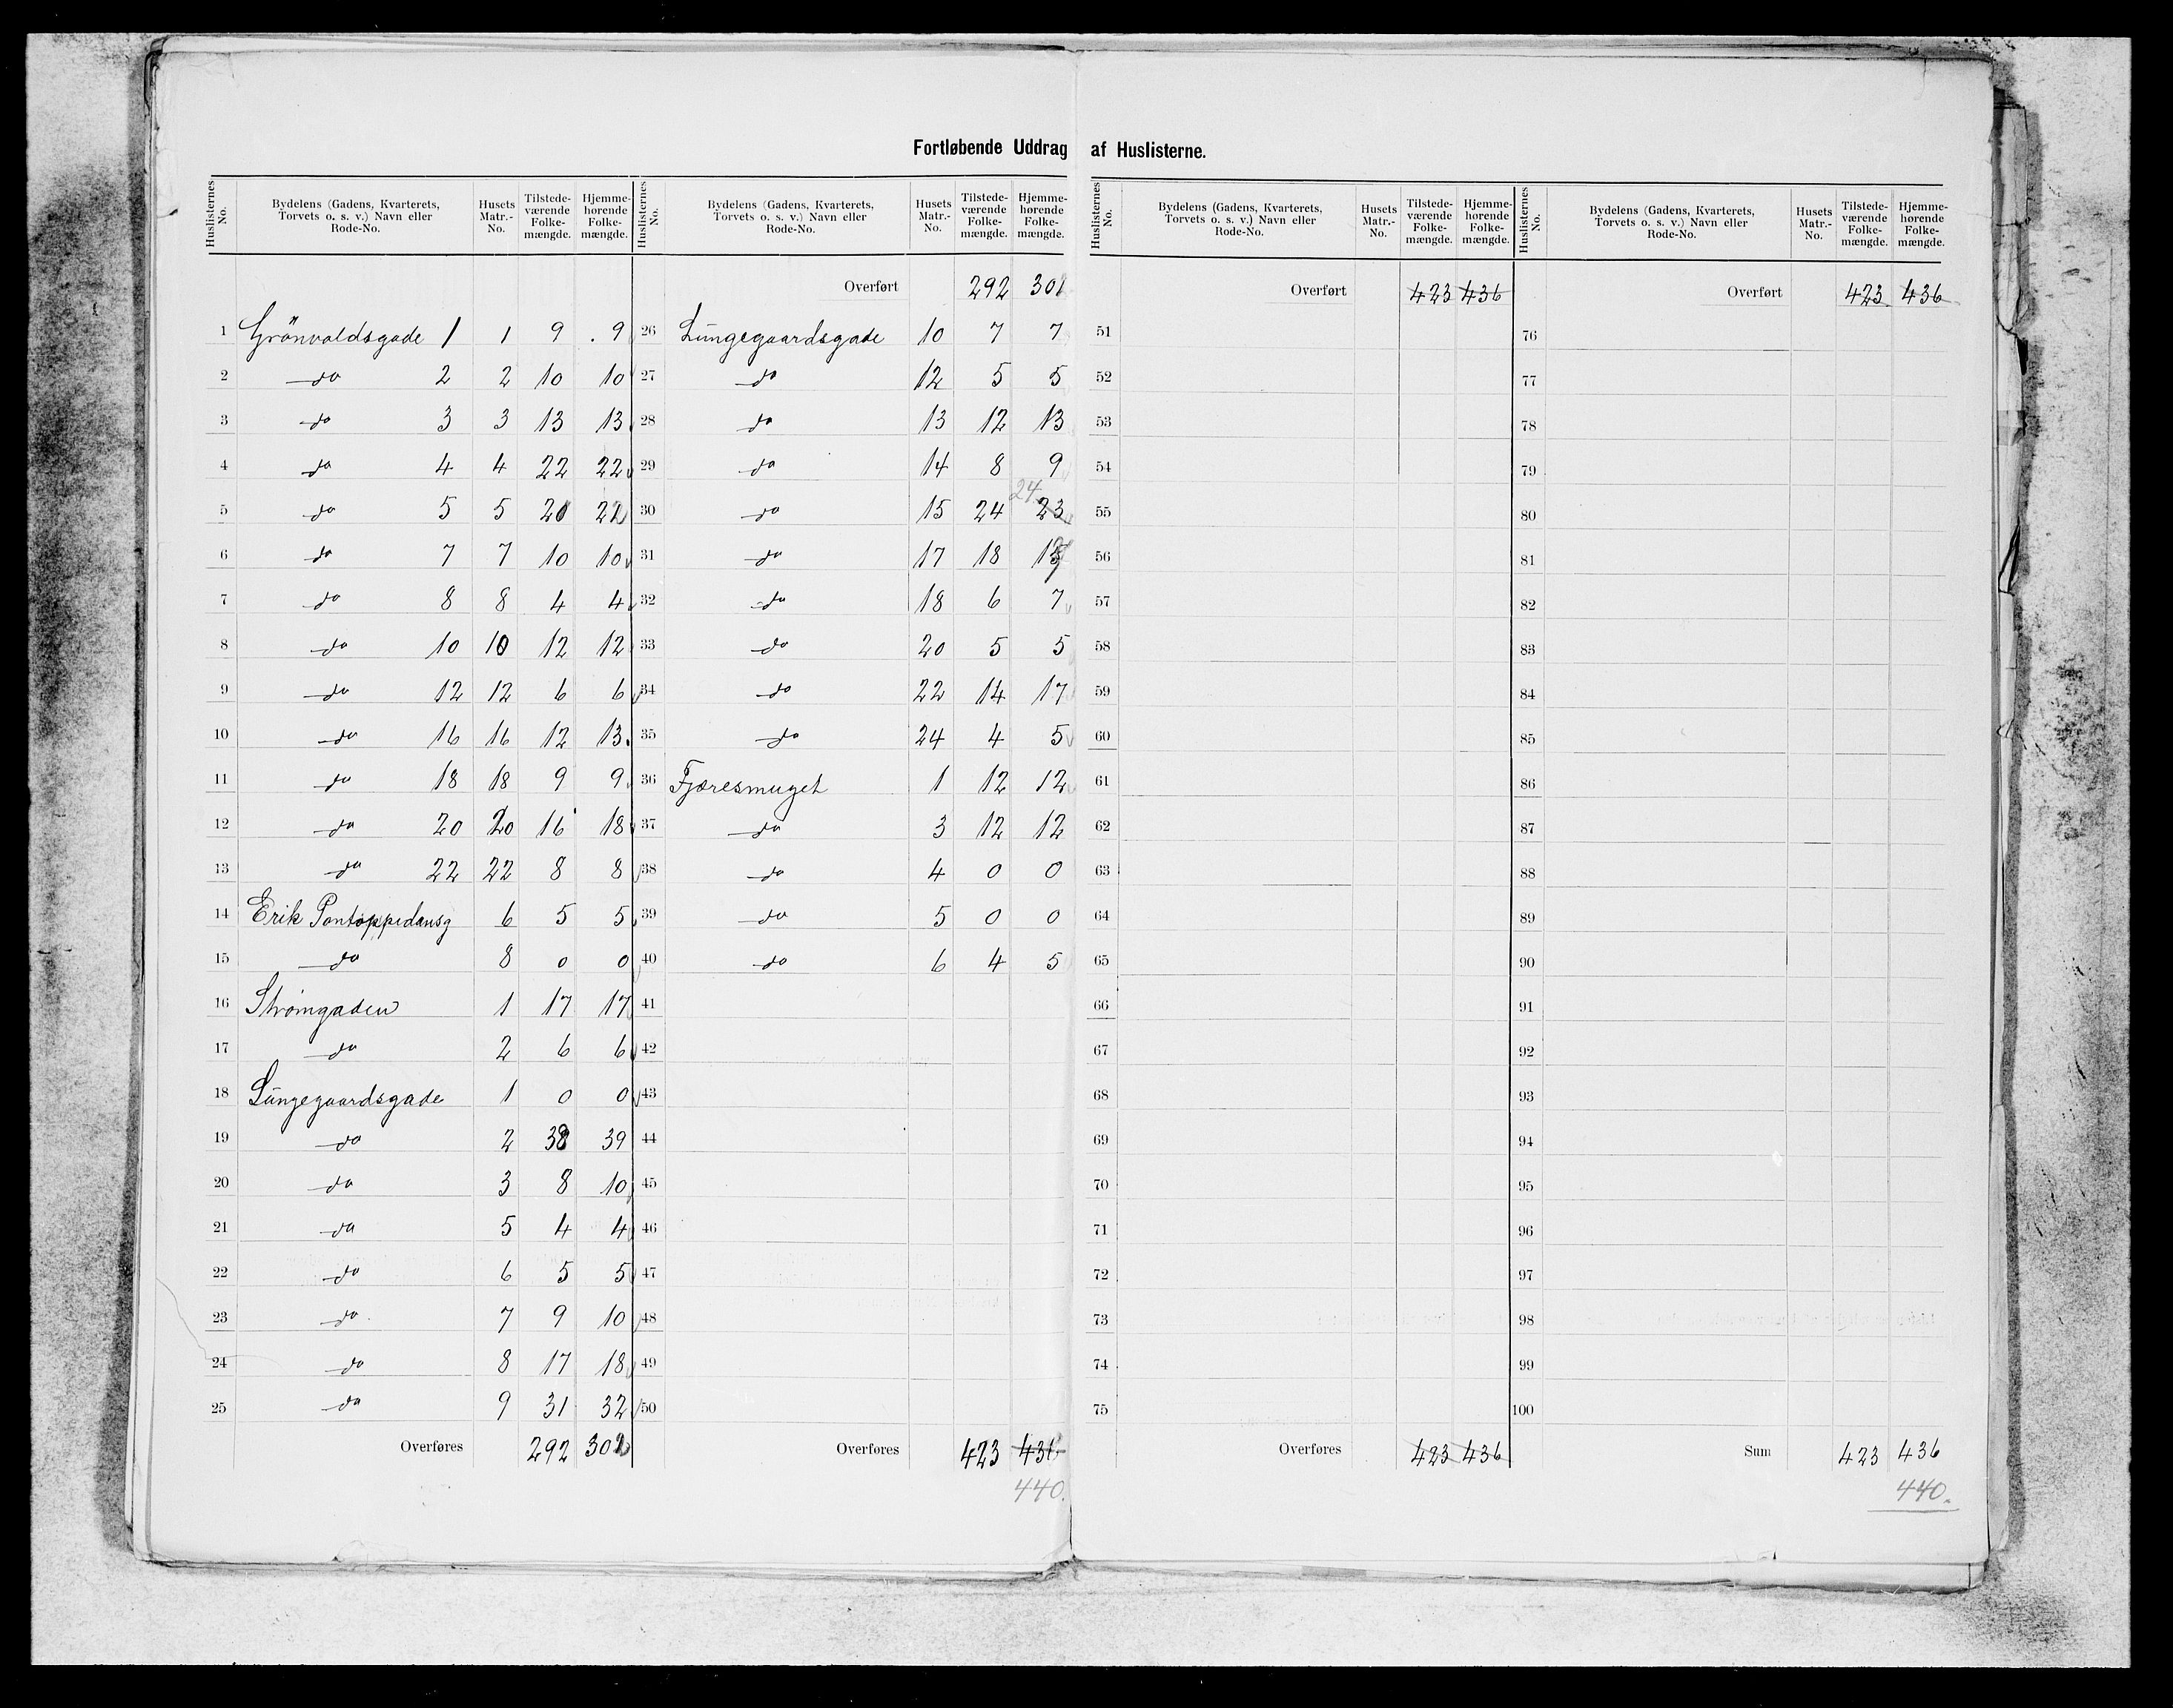 Fortløbende Uddrag af Huslisterne.
Huslisternes No. | Bydelens (Gadens, Kvarterets, Torvets o. s. v.) Navn eller Rode-No. | Husets Matr.-No. | Tilstede-værende Folke-mængde. | Hjemme-hørende Folke-mængde.
1 Grönvoldsgade 1 1 9 9
2 do 2 2 10 10
3 do 3 3 13 13
4 do 4 4 22 22
5 do 5 5 20 22
6 do 7 7 10 10
7 do 8 8 4 4
8 do 10 10 12 12
9 do 12 12 6 6
10 do 16 16 12 13
11 do 18 18 9 9
12 do 20 20 16 18
13 do 22 22 8 8
14 Erik Pontoppidansg 6 5 5
15 do 8 0 0
16 Strömgaden 1 17 17
17 do 2 6 6
18 Lungegaardsgade 1 0 0
19 do 2 38 39
20 do 3 8 10
21 do 5 4 4
22 do 6 5 5
23 do 7 9 10
24 do 8 17 18
25 do 9 31 32
Overføres 292 302
Huslisternes No. | Bydelens (Gadens, Kvarterets, Torvets o. s. v.) Navn eller Rode-No. | Husets Matr.-No. | Tilstede-værende Folke-mængde. | Hjemme-hørende Folke-mængde.
Overført 292 302
26 Lungegaardsgade 10 7 7
27 do 12 5 5
28 do 13 12 13
29 do 14 8 9
24
30 do 15 24 23
31 do 17 18
32 do 18 6 7
33 do 20 5 5
34 do 22 14 17
35 do 24 4 5
36 Fjæresmuget 1 12 12
37 do 3 12 12
38 do 4 0 0
39 do 5 0 0
40 do 6 4 5
41
42
43
44
45
46
47
48
49
50
Overføres 423 436
440.
Huslisternes No. | Bydelens (Gadens, Kvarterets, Torvets o. s. v.) Navn eller Rode-No. | Husets Matr.-No. | Tilstede-værende Folke-mængde. | Hjemme-hørende Folke-mængde.
Overført 423 436
51
52
53
54
55
56
57
58
59
60
61
62
63
64
65
66
67
68
69
70
71
72
73
74
75
Overføres 423 436
Huslisternes No. | Bydelens (Gadens, Kvarterets, Torvets o. s. v.) Navn eller Rode-No. | Husets Matr.-No. | Tilstede-værende Folke-mængde. | Hjemme-hørende Folke-mængde.
Overført 423 436
76
77
78
79
80
81
82
83
84
85
86
87
88
89
90
91
92
93
94
95
96
97
98
99
100
Sum 423 436
440.